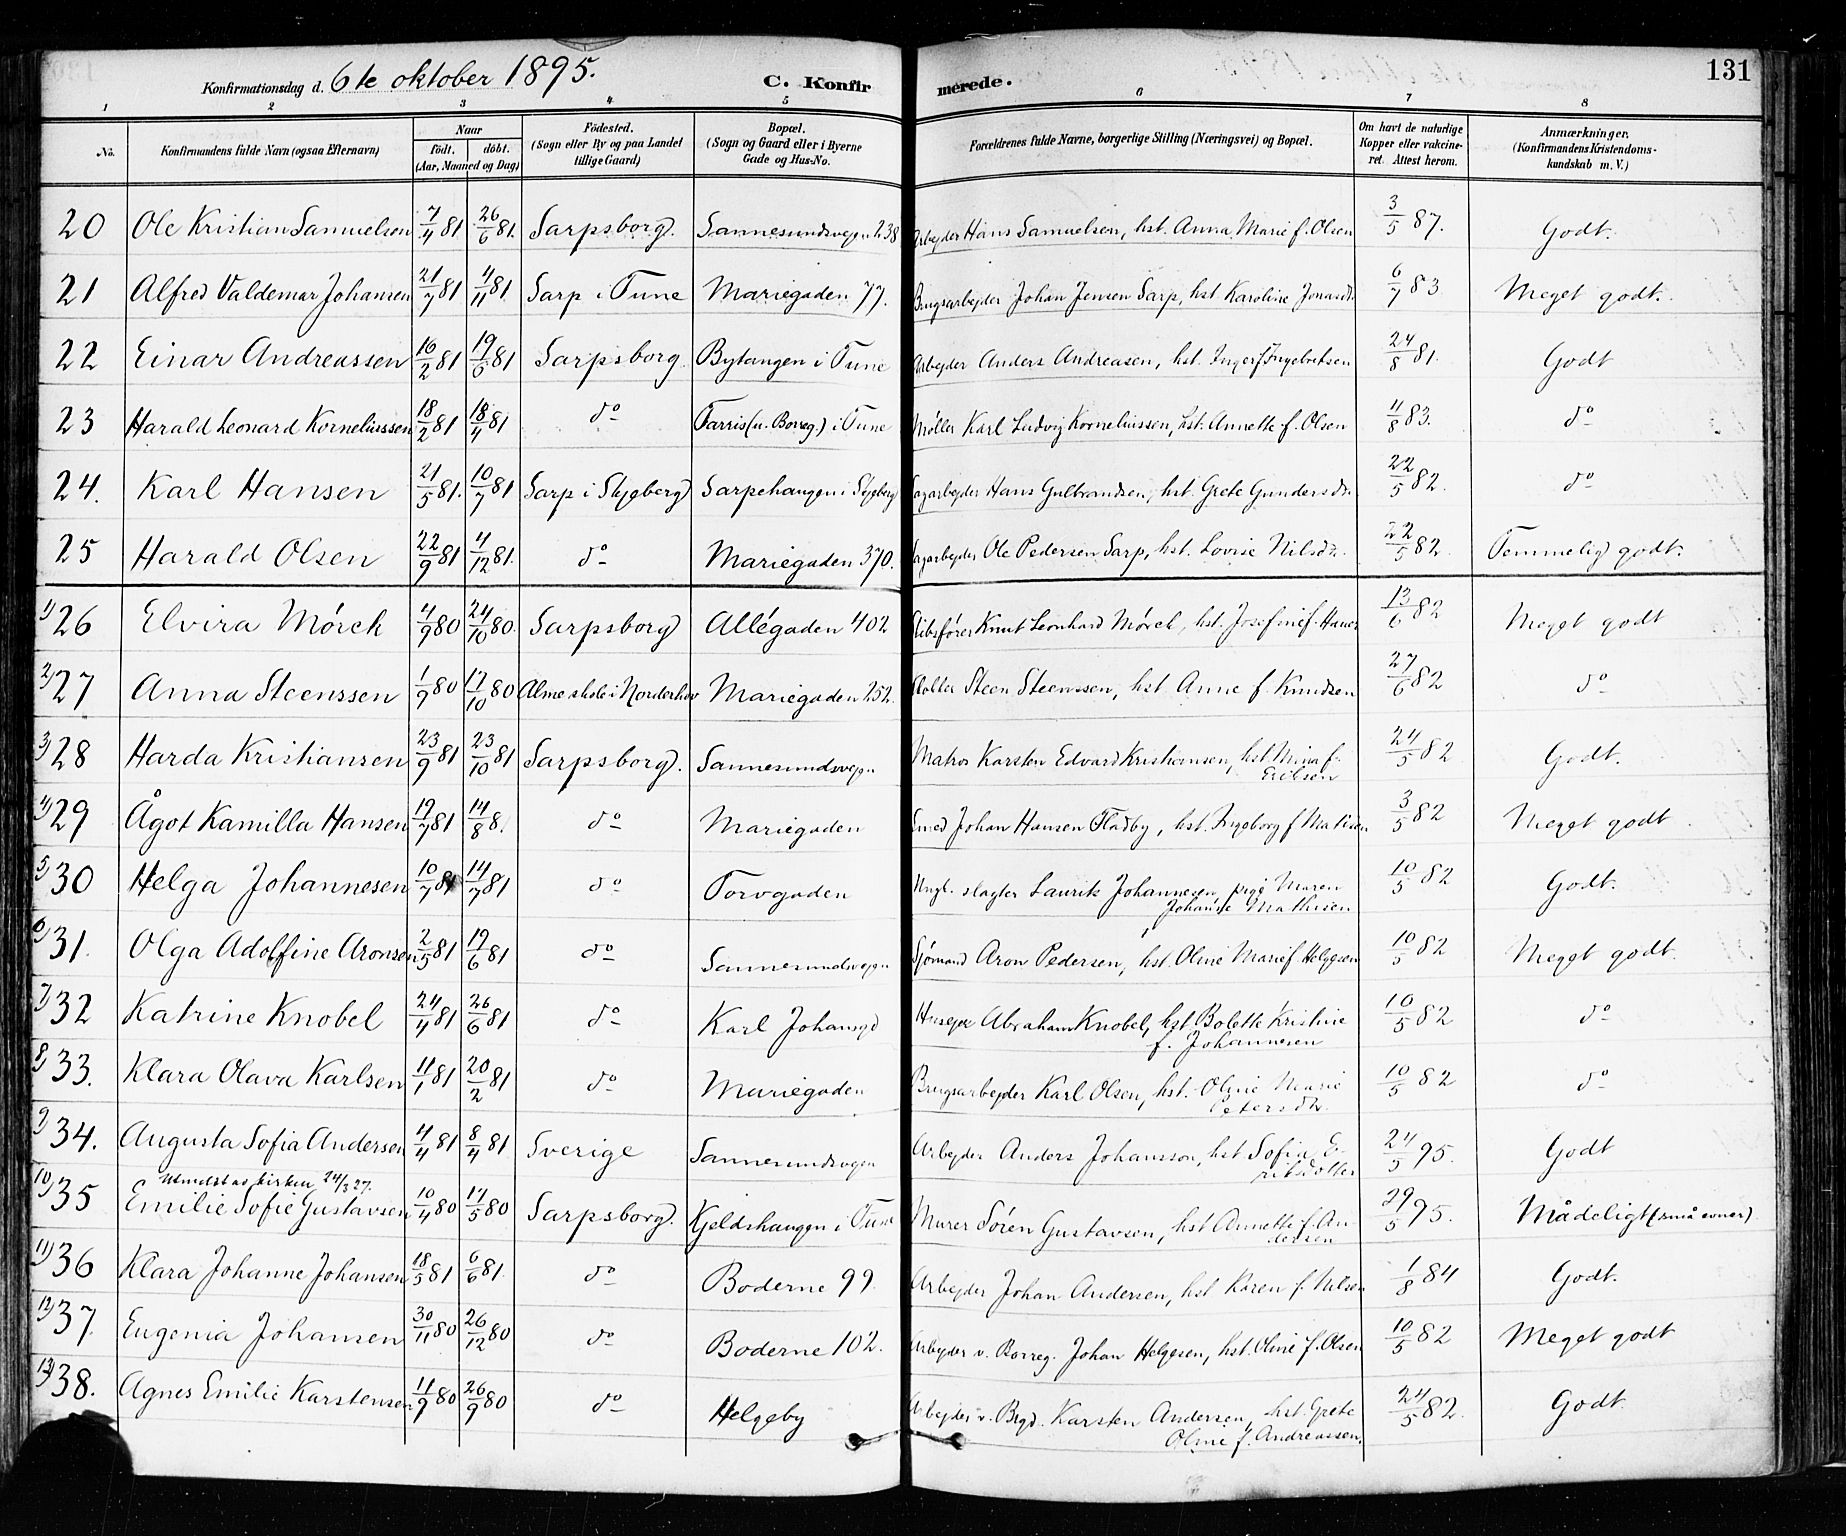 131
Konfirmationsdag d. 6te oktober 1895.
C. Konfirmerede.
1 2 3 4 5 6 7 8
No.
Konfirmandens fulde Navn (ogsaa Efternavn)
Naar
født. døbt.
(Aar, Maaned og Dag)
Fødested.
(Sogn eller By og paa Landet
tillige Gaard)
Bopæl.
(Sogn og Gaard eller i Byerne
Gade og Hus-No.
Forældrenes fulde Navne, borgerlige Stilling (Næringsvei) og Bopæl.
Om havt de naturlige
Kopper eller vakcine-
ret. Attest herom.
Anmærkninger.
(Konfirmandens Kristendoms-
kundskab m. V.)
20 Ole Kristian Samuelsen 7/4 81 26/6 81. Sarpsborg. Sannesundsvejen 238 Arbejder Hans Samuelsen, hst. Anna Marie f. Olsen 3/5 87. Godt.
21 Alfred Valdemar Johansen 21/7 81 4/11 81 Sarp i Tune Mariegaden 77. Brugsarbejder Johan Jensen Sarp, hst Karoline Jonasdt. 6/7 83 Meget godt.
22 Einar Andreassen 16/2 81 19/6 81 Sarpsborg Bytangen i Tune Arbejder Anders Andreasen, hst. Inger f. Ingebretsen 24/8 81. Godt
23 Harald Leonard Korneliussen 18/2 81 18/4 81 do Tarris (u. Borreg.) i Tune Møller Karl Ludvig Korneliussen, hst. Annette f. Olsen 4/8 83. do
24. Karl Hansen 21/5 81. 10/7 81 Sarp i Skjeberg Sarpehaugen i Skjeberg Sagarbejder Hans Gulbrandsen, hst. Grete Gundersdt. 22/5 82. do
25 Harald Olsen 22/9 81 4/12 81. do Mariegaden 370. Sagarbejder Ole Pedersen Sarp, hst. Lovise Nilsdt. 22/5 82. Temmelig godt.
1) 26 Elvira Mörck 4/9 80 24/10 80. Sarpsborg Allégaden 402 Skibsfører Knut Leonhard Mörck, hst. Josefine f. Hansen 13/6 82 Meget godt
2) 27 Anna Steenssen 1/9 80 17/10 80 Alme skole i Norderhov Mariegaden 252. Sloller Steen Steenssen, hst. Anne f. Knudsen 27/6 82 do
3) 28 Harda Kristiansen 23/9 81 23/10 81 Sarpsborg. Sannesundsvejen Matros Karsten Edvard Kristiansen, hst Mina f.
Eriksen 24/5 82 Godt.
4) 29 Ågot Kamilla Hansen 19/7 81 14/8 8. do Mariegaden Smed Johan Hansen Fladby, hst. Ingeborg f Matisen 3/5 82 Meget godt
5) 30 Helga Johannesen 10/7 81 14/7 81 do Torvgaden Ungk. slagter Laurits Johannesen, pige Maren
Johanne Mathisen 10/5 82 Godt.
6) 31. Olga Adolfine Aronsen 2/5 81 19/6 81 do Sannesundsvejen Sjømand Aron Pedersen, hst. Oline Marie f Helgesen 10/5 82 Meget godt.
7) 32 Katrine Knobel 24/4 81 26/6 81 do Karl Johansgd Husejer Abraham Knobel, hst Bolette Kristine
f. Johannesen 10/5 82 do
8) 33. Klara Olava Karlsen 11/1 81 20/2 81 do Mariegaden Brugsarbejder Karl Olsen, hst. Oline Marie
Petersdt. 10/5 82 do
9) 34. Augusta Sofia Andersen 4/4 81 8/4 81 Sverige Sannesundsvegen Arbejder Anders Johansson, hst Sofia E-
riksdotter 24/5 95. Godt
Utmeldt av kirken 24/3 27.
10) 35 Emilie Sofie Gustavsen 10/4 80 17/5 80 Sarpsborg. Kjeldshaugen i Tune Murer Søren Gustavsen, hst Annette f. An-
dersen 29/5 95. Mådeligt (små evner).
11) 36 Klara Johanne Johansen 18/5 81 6/6 81. do Boderne 99. Arbejder Johan Andersen, hst Karen f. Nilsen 1/8 84 Godt.
12) 37. Eugenia Johansen 30/11 80 26/12 80 do Boderne 102. Arbejder v. Borreg. Johan Helgesen, hst. Oline f. Olsen 10/5 82 Meget godt
13) 38. Agnes Emilie Karstensen 11/9 80 26/9 80 do Helgeby Arbejder v. Brgd. Karsten Andersen, hst. Grete
Oline f. Andreassen. 24/5 82. Godt.